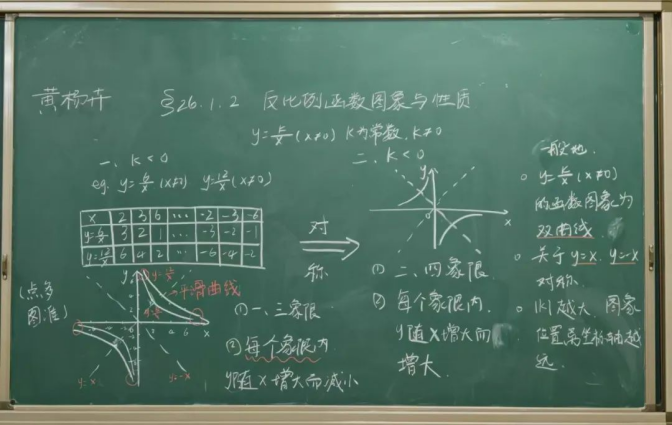 黄杨卉
§26.1.2 反比例函数图象与性质
y=k/x (x≠0) k为常数, k≠0
一、k<0
eg. y=6/x (x≠0) y=12/x (x≠0)
x 2 3 6 … -2 -3 -6
y=6/x 3 2 1 … -3 -2 -1
y=12/x 6 4 2 … -6 -4 -2
(点多
图准)
y
y=12/x
平滑曲线
y=6/x
x
y=x
y=-x
①一、三象限
②每个象限内
y随x增大而减小
对
称
二、k<0
y
0
x
①二、四象限
②每个象限内,
y随x增大而
增大
一般地,
y=k/x (x≠0)
的函数图象为
双曲线
关于y=x, y=-x
对称.
|k|越大, 图象
位置离坐标轴越
远.